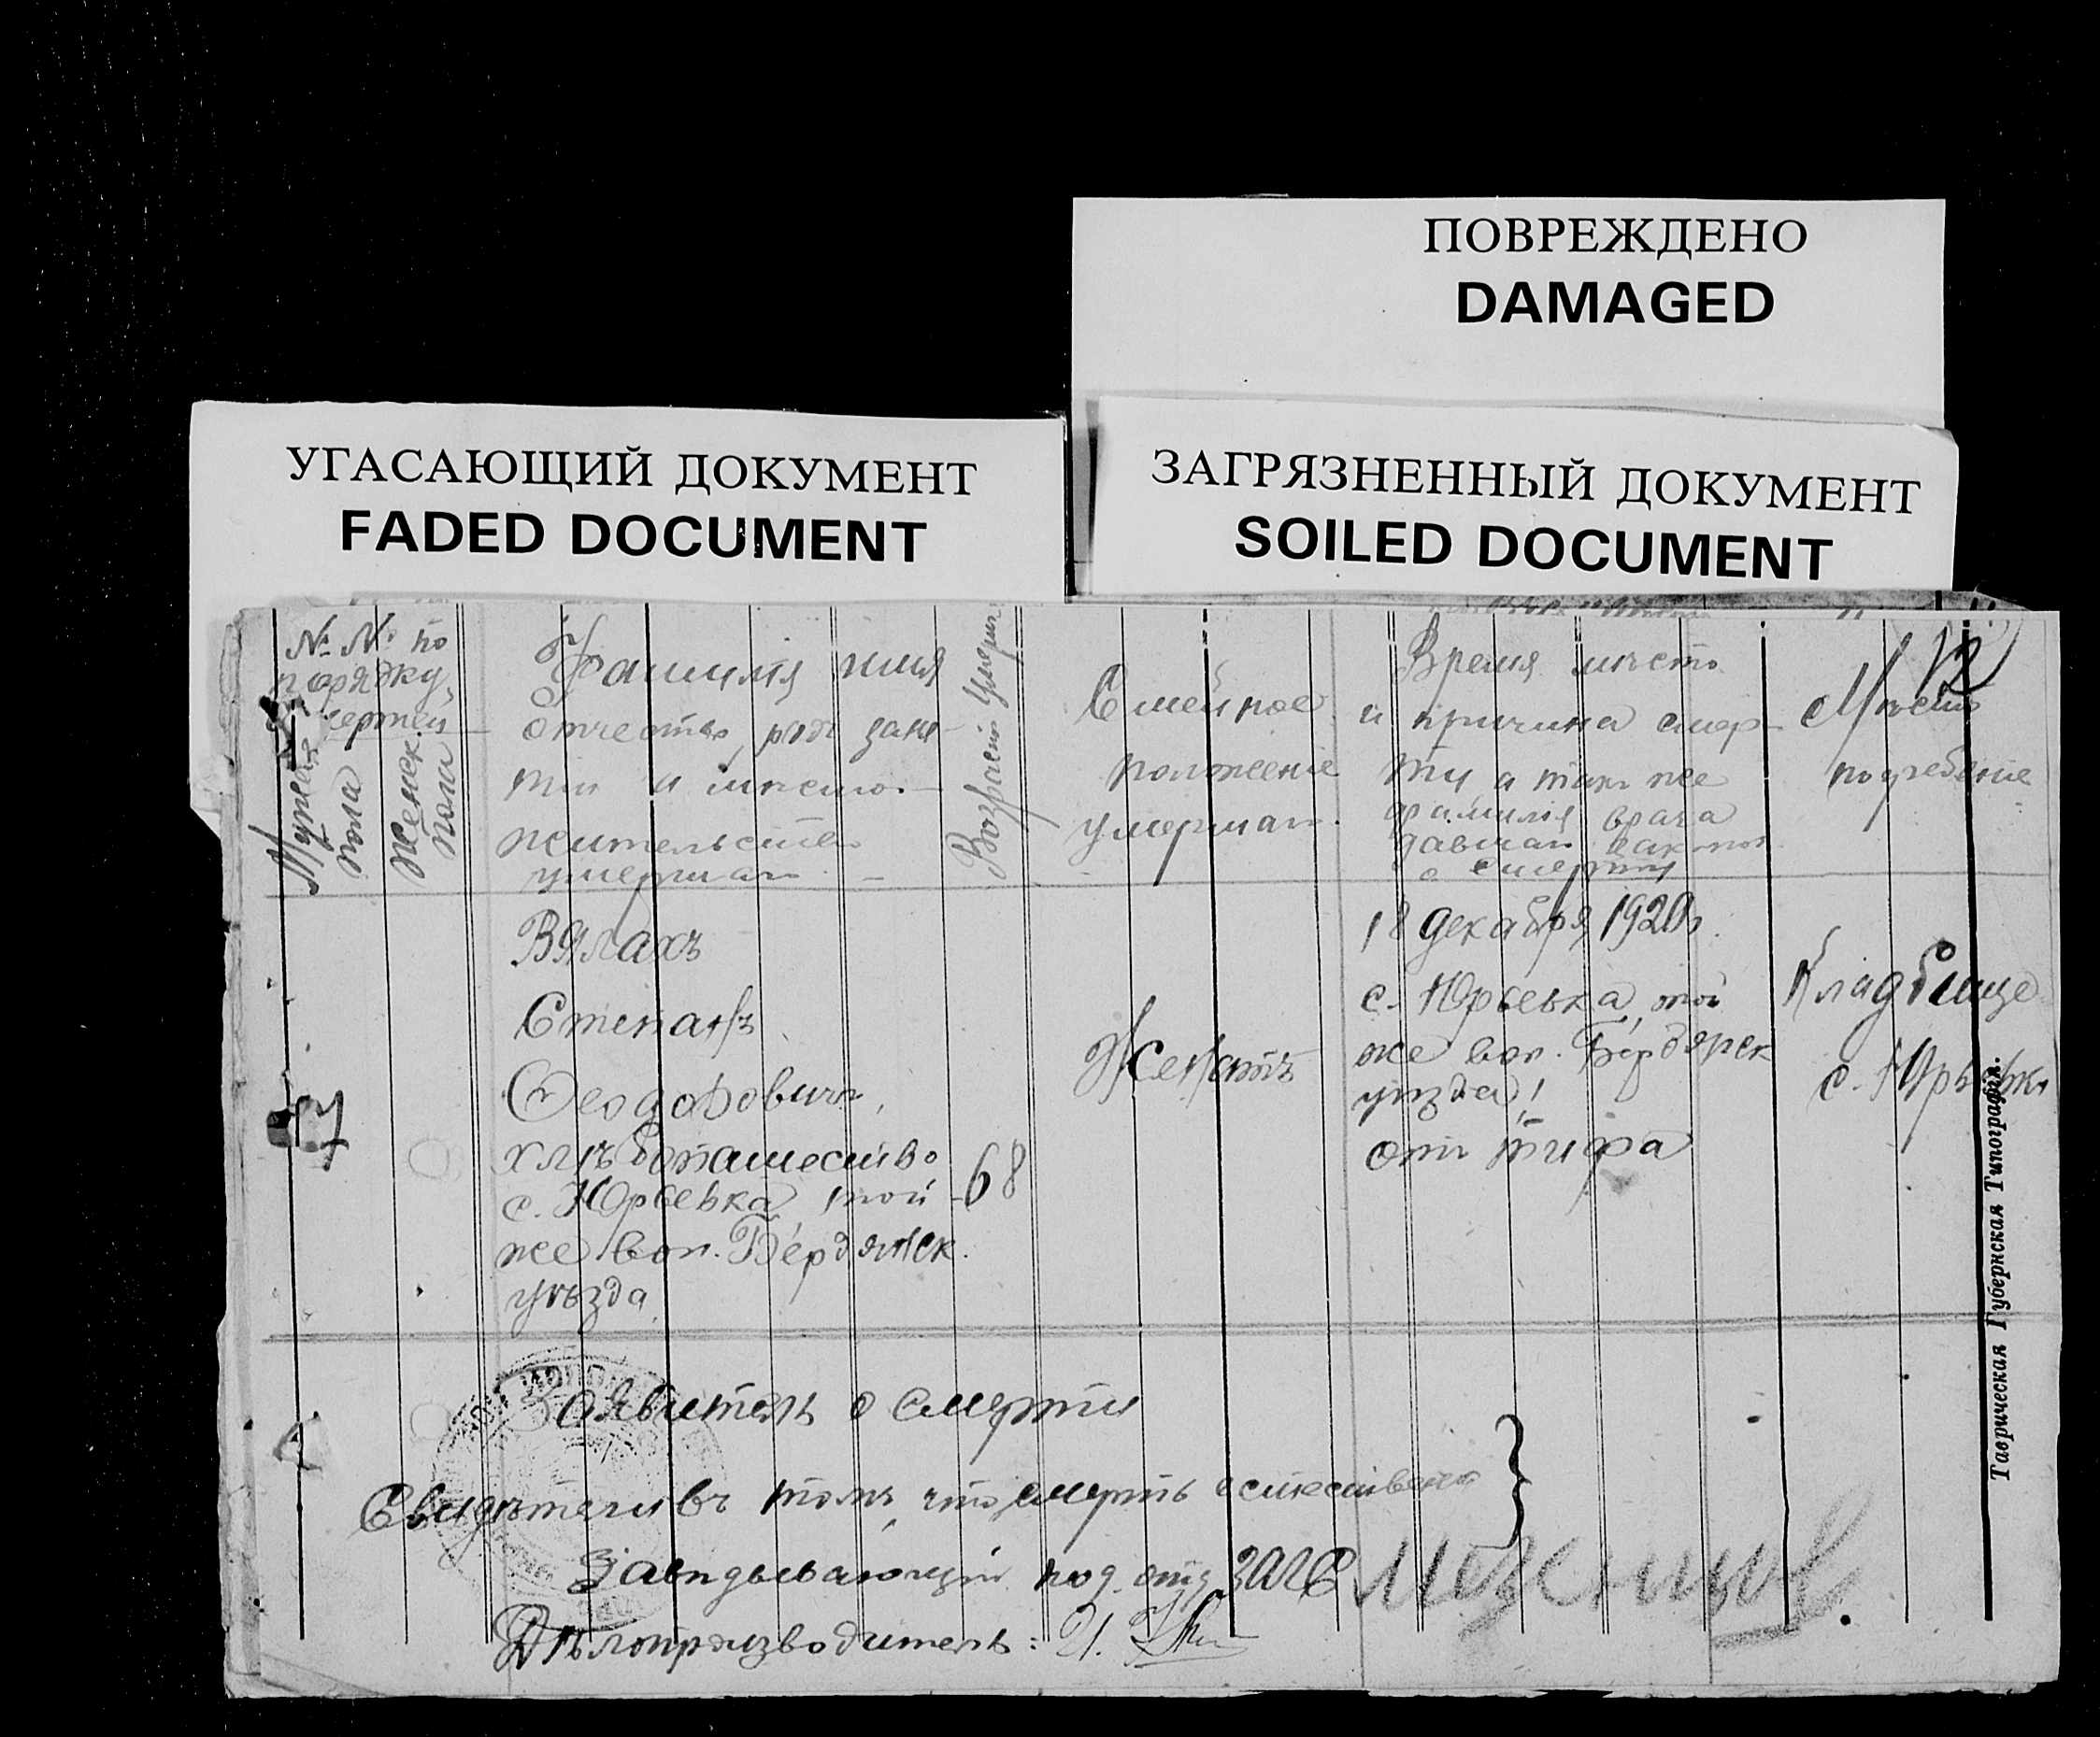 ПОВРЕЖДЕНО
DAMAGED
УГАСАЮЩИЙ ДОКУМЕНТ
FADED DOCUMENT
ЗАГРЯЗНЕННЫЙ ДОКУМЕНТ
SOILED DOCUMENT
№ № по
порядку
Мужска
пола
Женск.
пола
Фамилія имя
отчество, родъ заня-
тій и место-
жительство
умершаго
Возрастъ умерш
Семейное
положеніе
умершаго
Время место
и причина смер-
ти а такъ же
фамилія врача
о смерти
Место
погребеніе
12
17
Вялахъ
Степанъ
Феодоровичъ,
хлѣбопашество
с. Юрьевка той
же вол. Бердянск.
уѣзда
68
Женатъ
18 декабря 1920г.
с. Юрьевка, той
же вол. Бердянск
уезда,
отъ тифа
Кладбище
с. Юрьевки
Заявитель о смерти
Свидетели въ томъ, что смерть естествена
Заведывающій под. отд ЗАГС
Дѣлопроизводитель: И.
Таврическая Губернская Типографія.